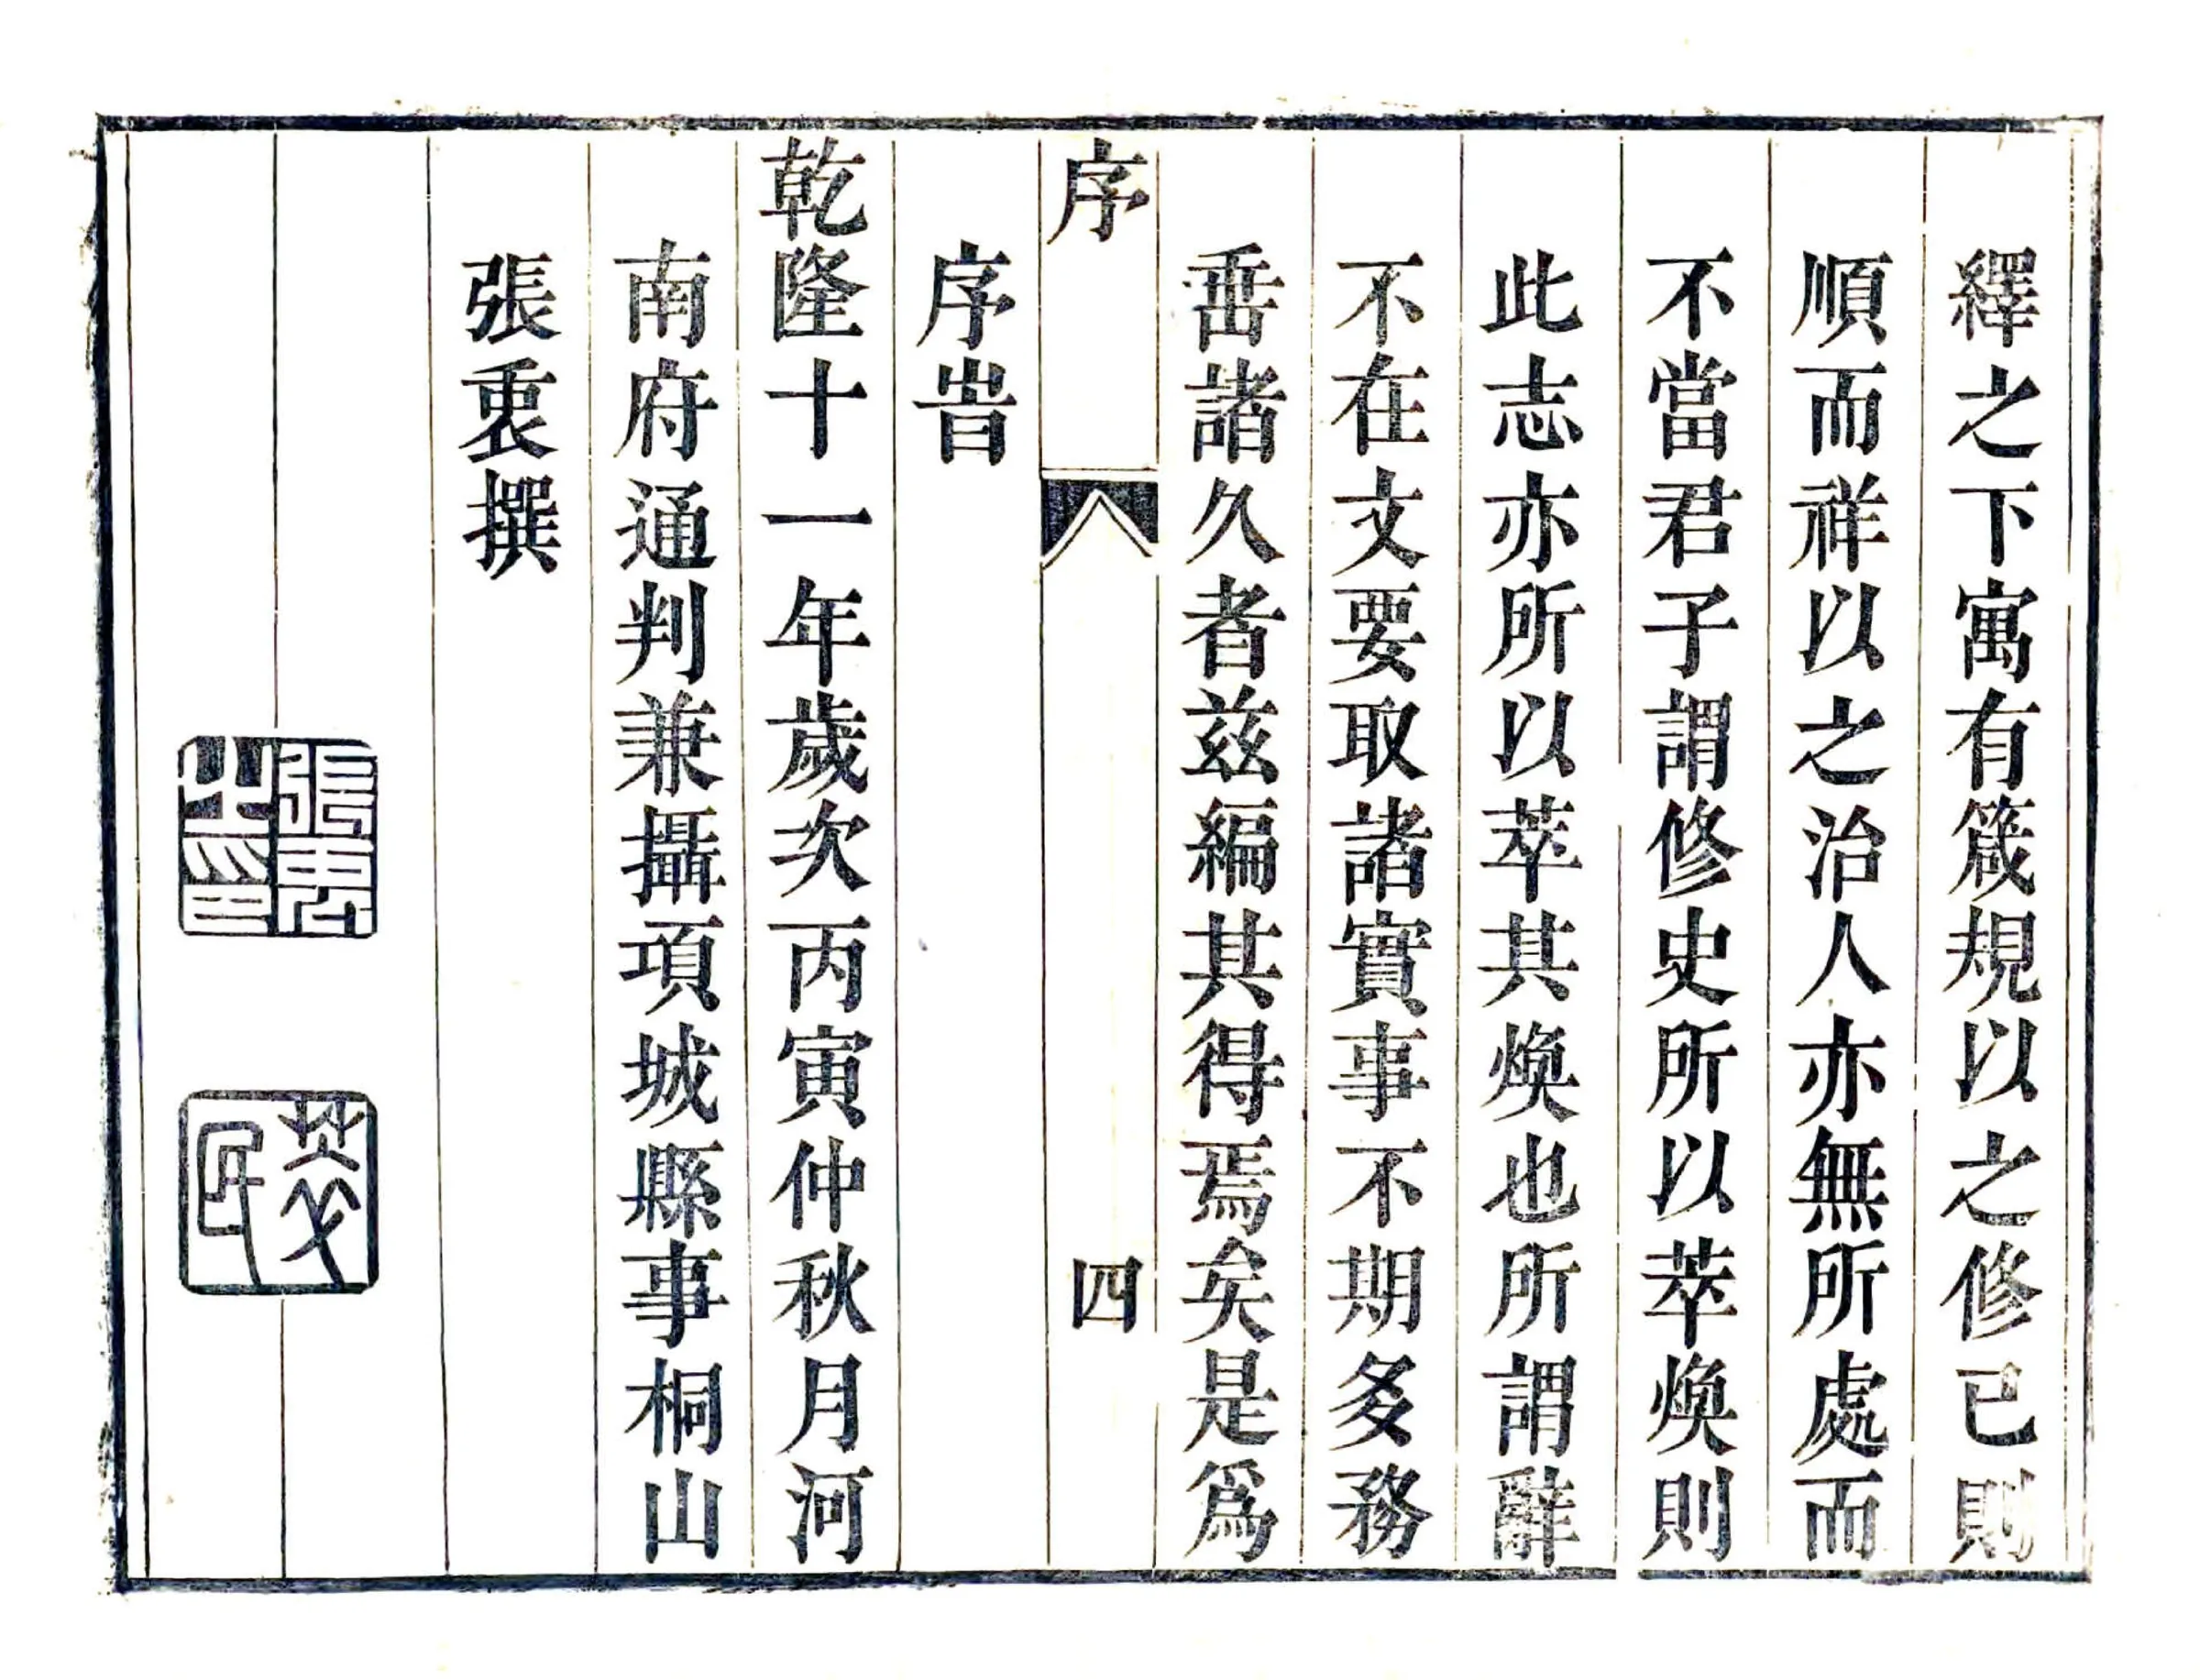 繹之下寓有箴規以之修已則
順而祥以之治人亦無所處而
不當君子謂修史所以萃煥則
此志亦所以萃其煥也所謂辭
不在文要取諸實事不期多務
垂諸久者兹編其得焉矣是爲
序
四
序旹
乾隆十一年歲次丙寅仲秋月河
南府通判兼攝項城縣事桐山
張衷撰
張衷之印